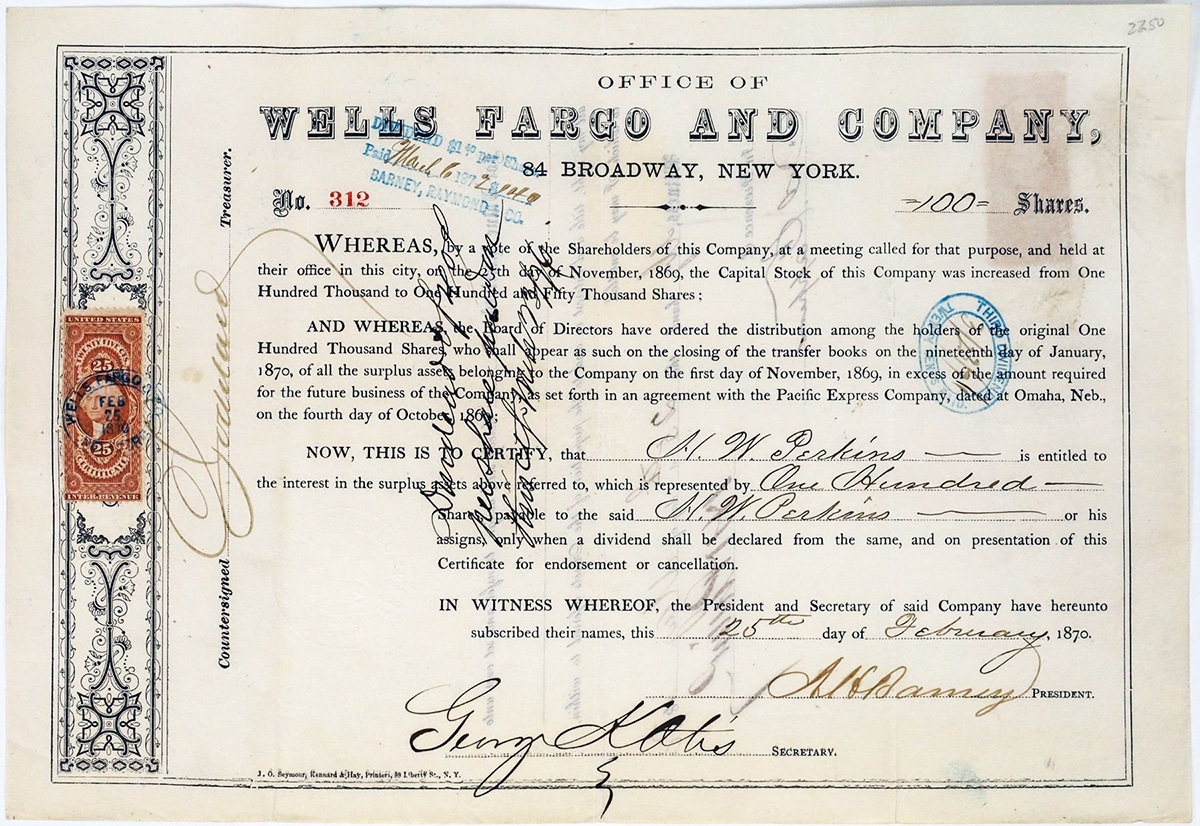 2250
OFFICE OF
WELLS FARGO AND COMPANY,
84 BROADWAY, NEW YORK.
DIVIDEND $1 40 per Share
Paid March 6 1872
BARNEY, RAYMOND & CO.
No. 312
-100- Shares.
WHEREAS, by a vote of the Shareholders of this Company, at a meeting called for that purpose, and held at
their office in this city, on the 25th day of November, 1869, the Capital Stock of this Company was increased from One
Hundred Thousand to One Hundred and Fifty Thousand Shares;
AND WHEREAS, the Board of Directors have ordered the distribution among the holders of the original One
Hundred Thousand Shares, who shall appear as such on the closing of the transfer books on the nineteenth day of January,
1870, of all the surplus assets belonging to the Company on the first day of November, 1869, in excess of the amount required
for the future business of the Company, as set forth in an agreement with the Pacific Express Company, dated at Omaha, Neb.,
on the fourth day of October, 1869.
NOW, THIS IS TO CERTIFY, that H. W. Perkins is entitled to
the interest in the surplus assets above referred to, which is represented by One Hundred
Shares, payable to the said H. W. Perkins or his
assigns, only when a dividend shall be declared from the same, and on presentation of this
Certificate for endorsement or cancellation.
IN WITNESS WHEREOF, the President and Secretary of said Company have hereunto
subscribed their names, this 25th day of February, 1870.
A H Barney PRESIDENT.
George K Otis SECRETARY.
J. O. Seymour, Kennard & Hay, Printers, 89 Liberty St., N. Y.
Countersigned
Treasurer.
Dividend of
per share
THIRD DIVIDEND
TWENTY
UNITED STATES
TWENTY FIVE
25
WELLS FARGO
FEB
25
1870
25
CERTIFICATE
INTER. REVENUE